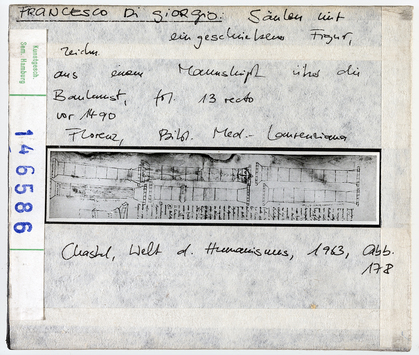 FRANCESCO DI GIORGIO: Säulen mit
eingeschriebener Figur,
zeichn.
aus einem Manuskript über die
Baukunst, fol. 13 recto
vor 1490
Florenz, Bibl. Med.- Laurenziana
Kunstgesch.
Sem. Hamburg
146586
Chastel, Welt d. Humanismus, 1963, Abb.
178